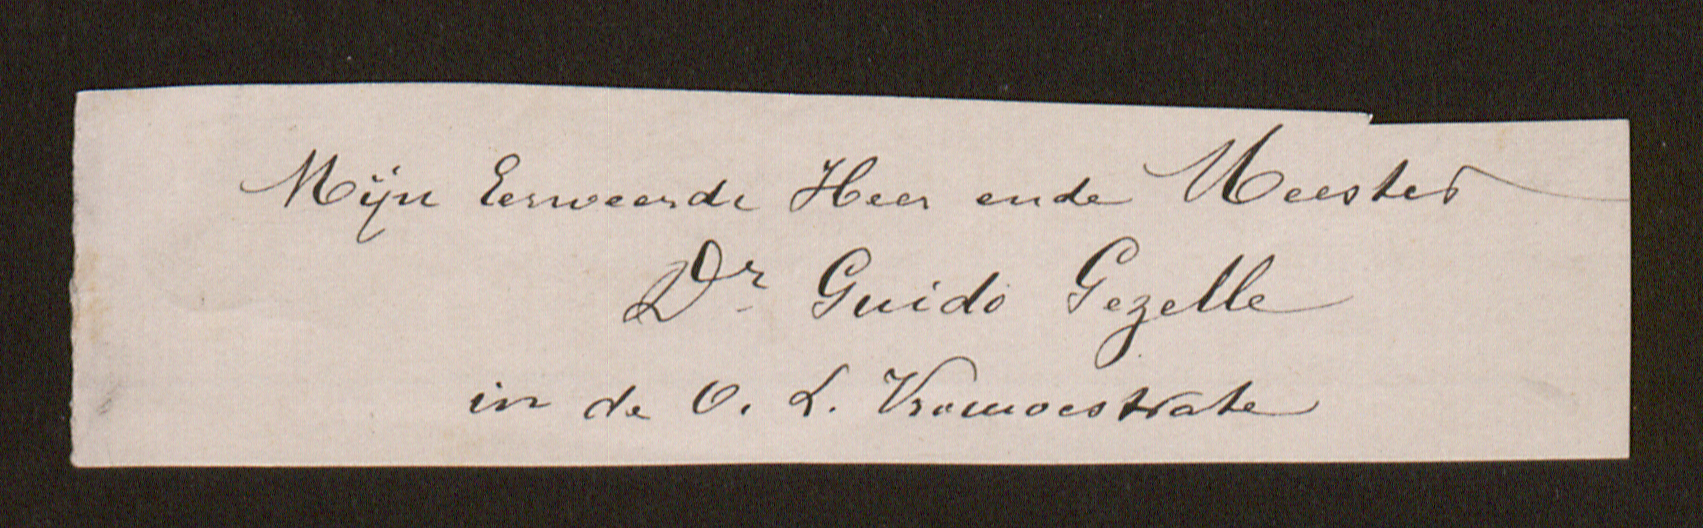 Mijn Eerweerde Heer ende Meester
Dr Guido Gezelle
in de O. L. Vrouwestrate